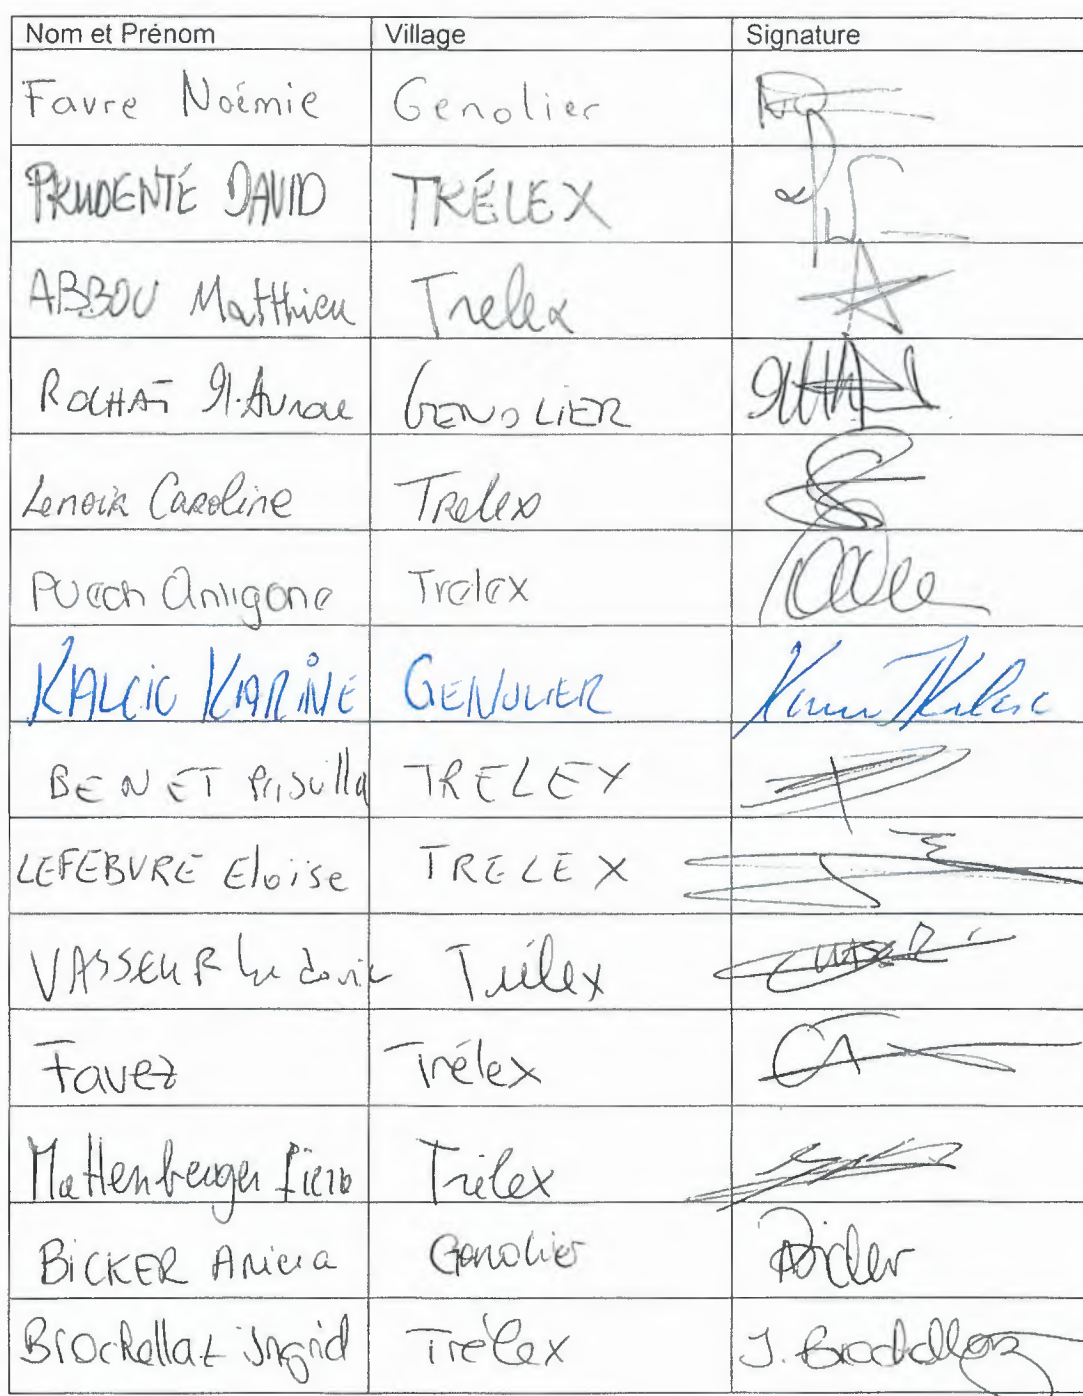 Nom et Prénom Village Signature
Favre Noémie Genolier
PRUDENTE DAVID TRÉLEX
ABBOU Matthieu Trelex
ROCHAT GENOLIER
Lenoir Caroline Trelex
PUech Antigone Trelex
KALCIC KARINE GENOLIER
BENET Priscilla TRELEX
LEFEBVRE Eloïse TRELEX
VASSEUR Ludovic Trélex
Favez Trélex
Mattenberger Trélex
BICKER Genolier
Ingrid Trélex